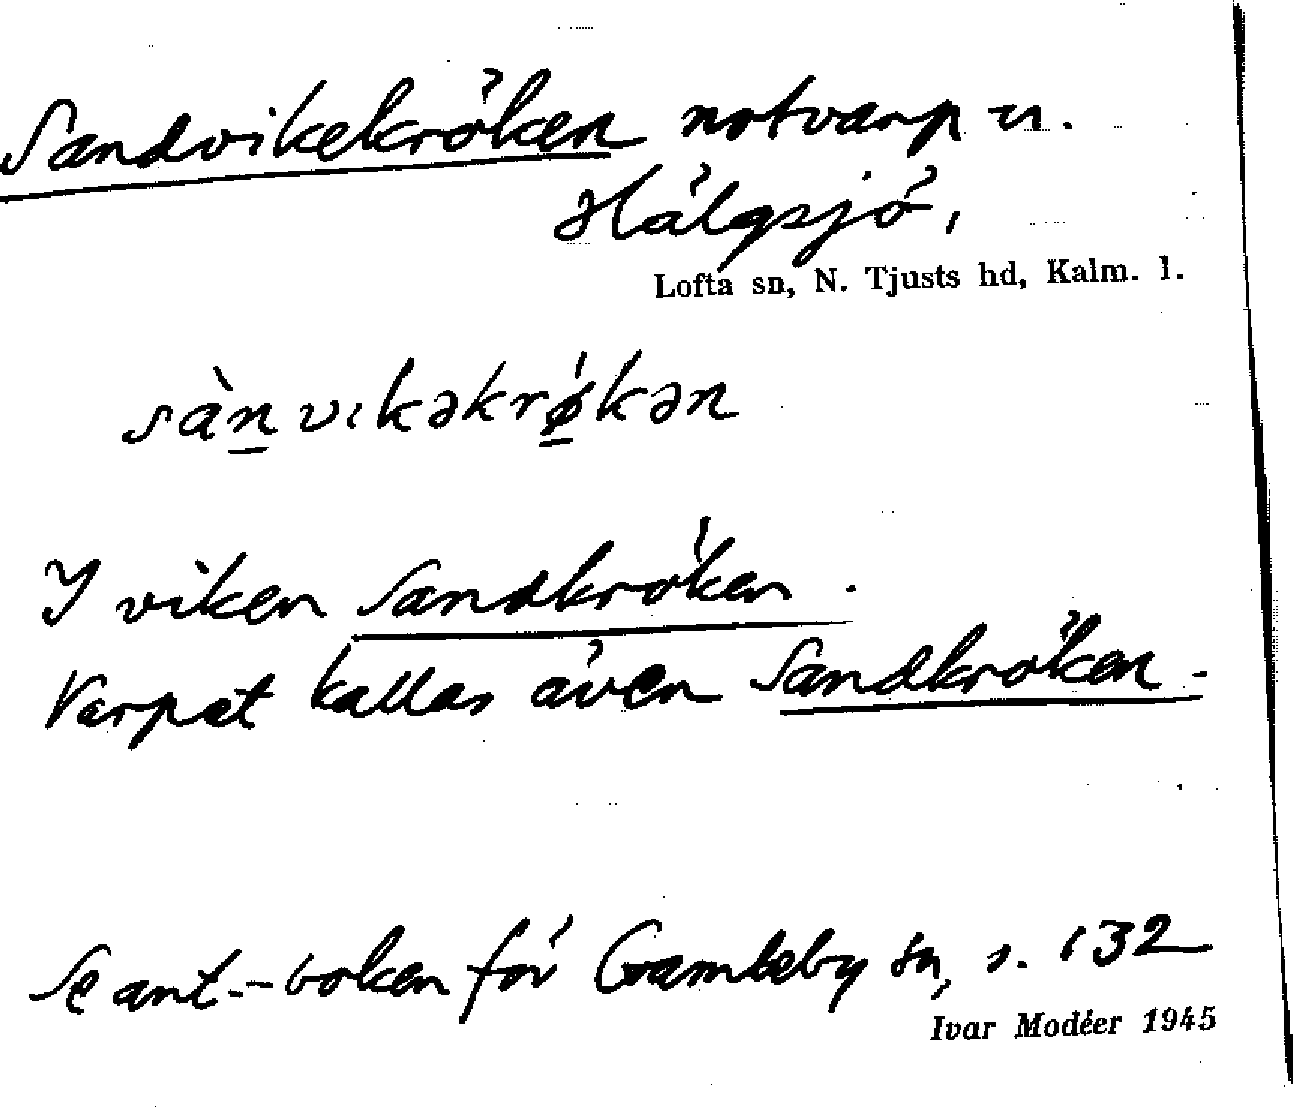 Sandvikekröken notvarp u.
Hälgsjö,
Lofta sn, N. Tjusts hd, Kalm. l.
sàn̲vıkəkrǿ̲kən
I viken Sandkröken.
Varpet kallas även Sandkröken.
Se ant.-boken för Gamleby sn, s. 132
Ivar Modéer 1945